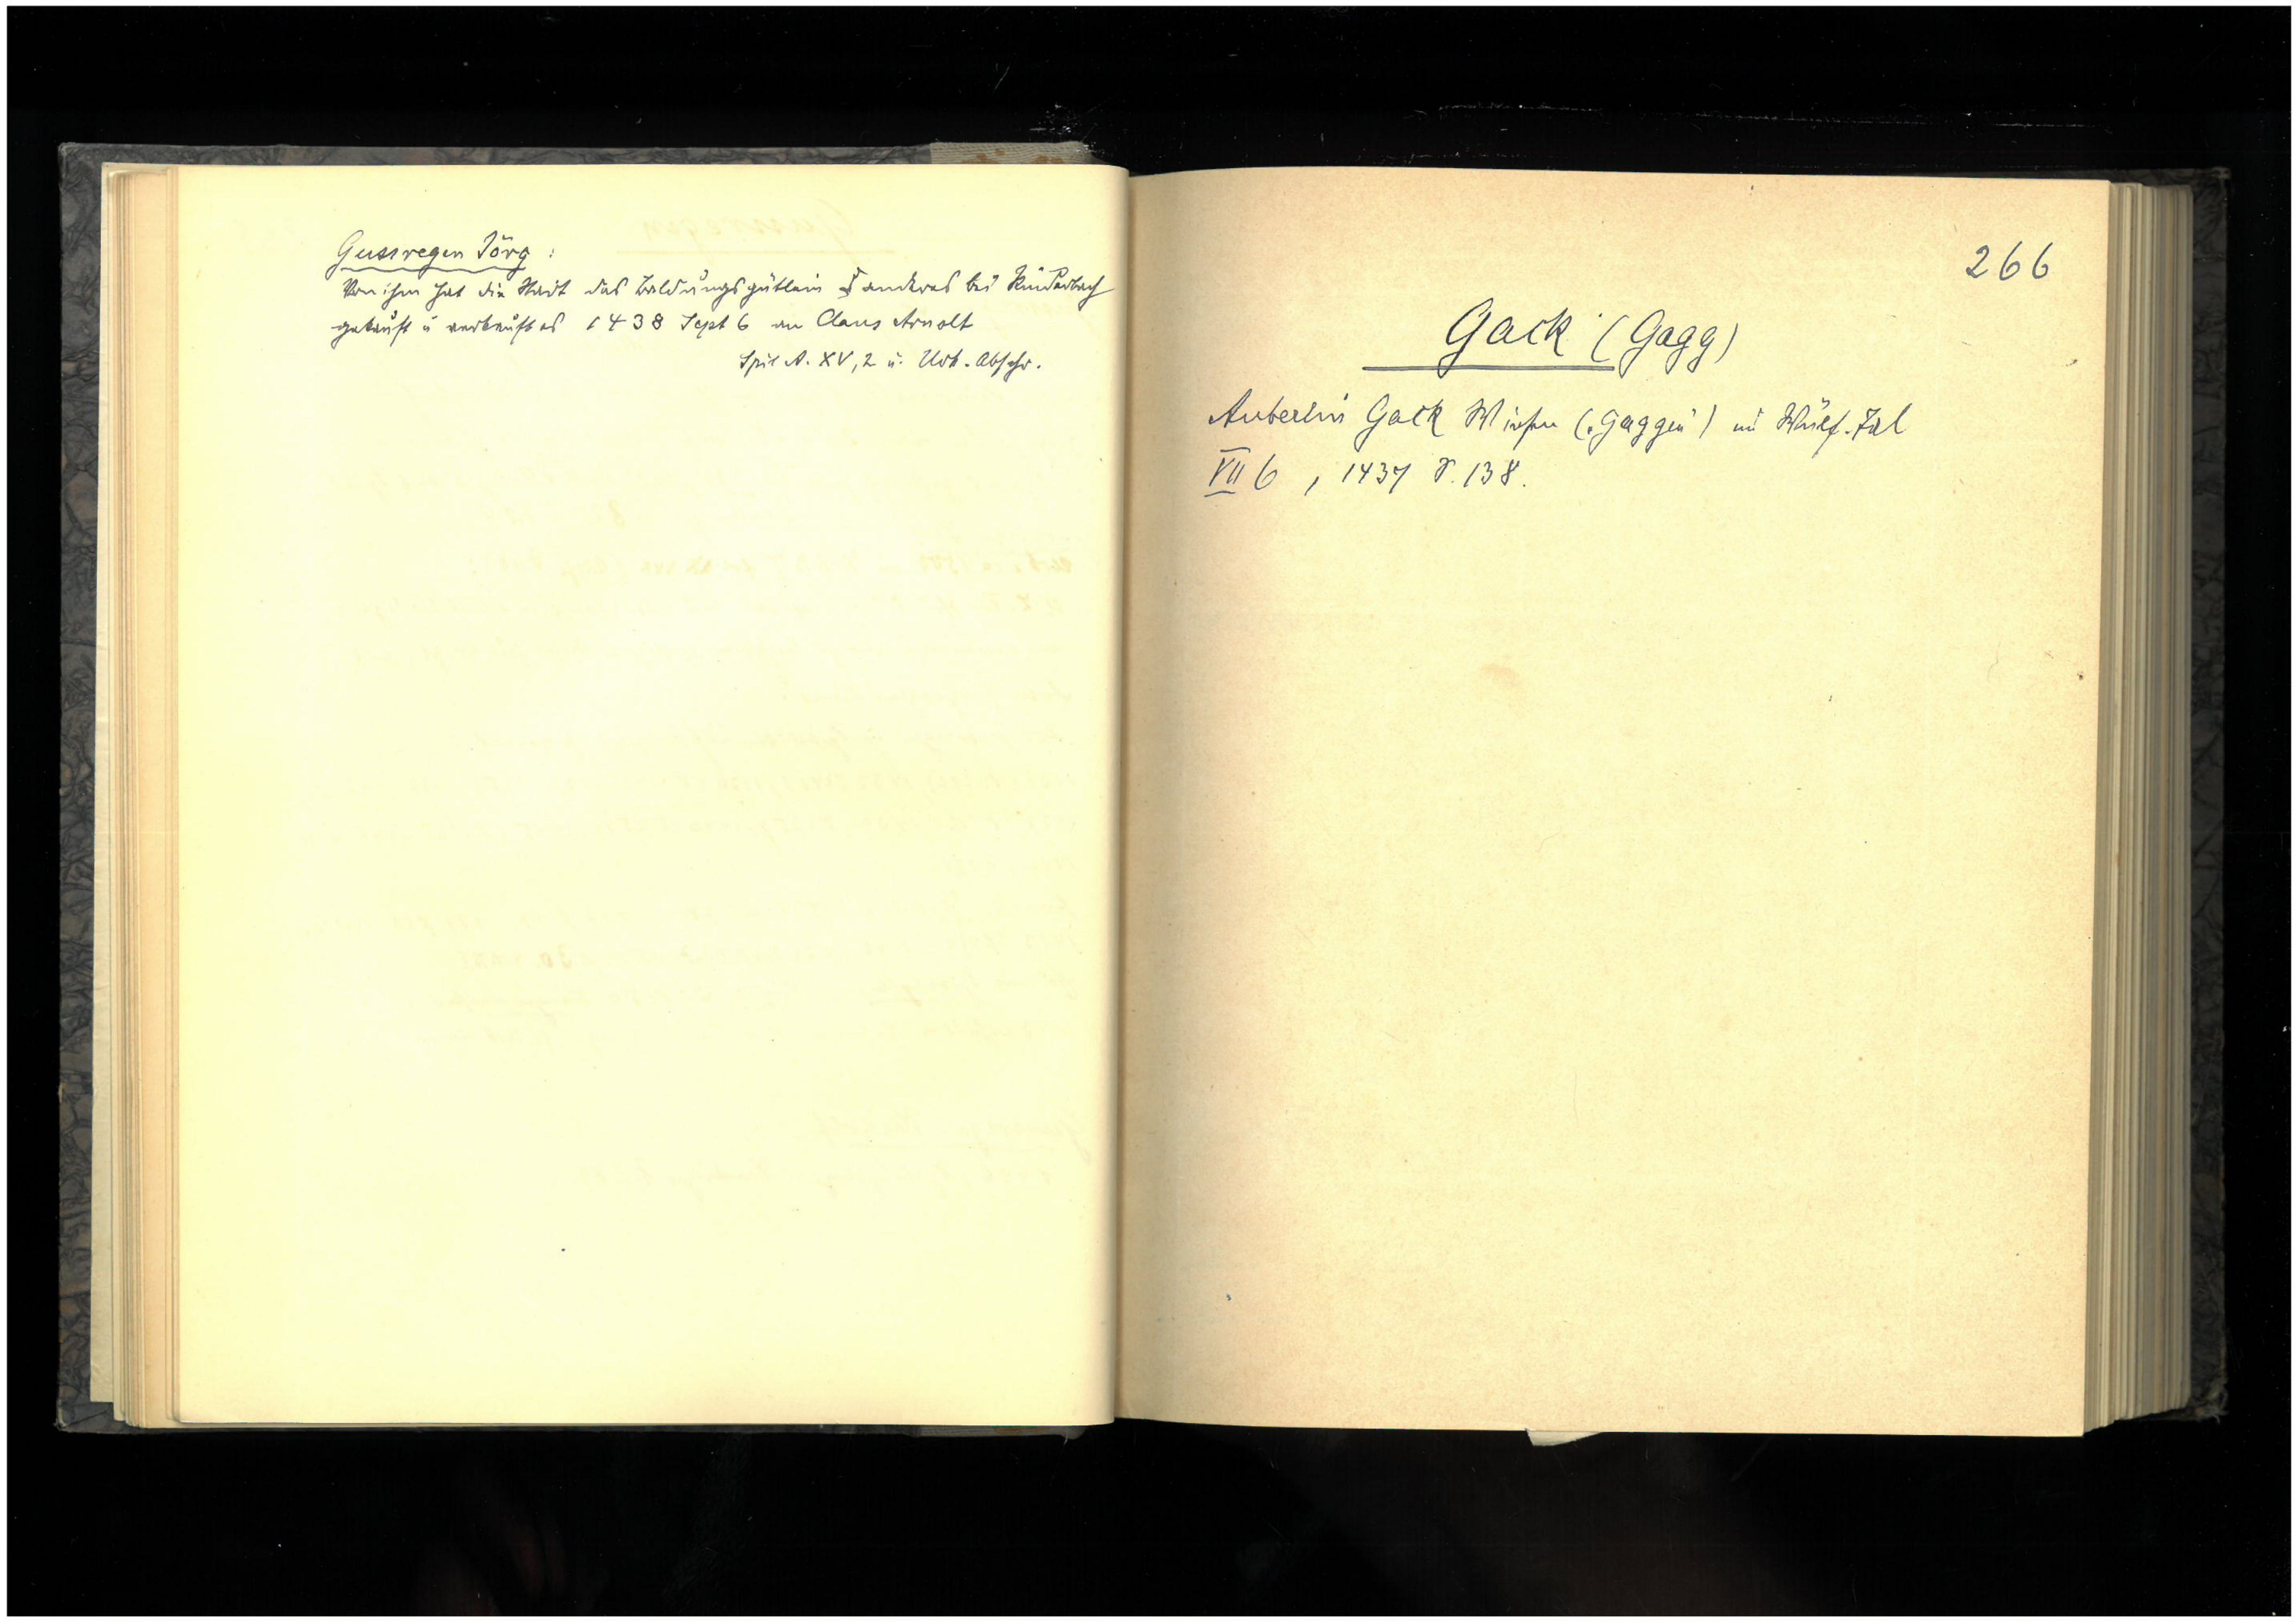 Gussregen Jörg :
Von ihm hat die Stadt das Baldungsgütlein & anderes bei Rinderbach
gekauft u verkauft es 1438 Sept 6 an Claus Arnolt
Spit A. XV, 2 u. Urk. Abschr.
266
Gack (Gagg)
Auberlin Gack Wiesen ( ) im Tal
VII 6 , 1437 S. 138.